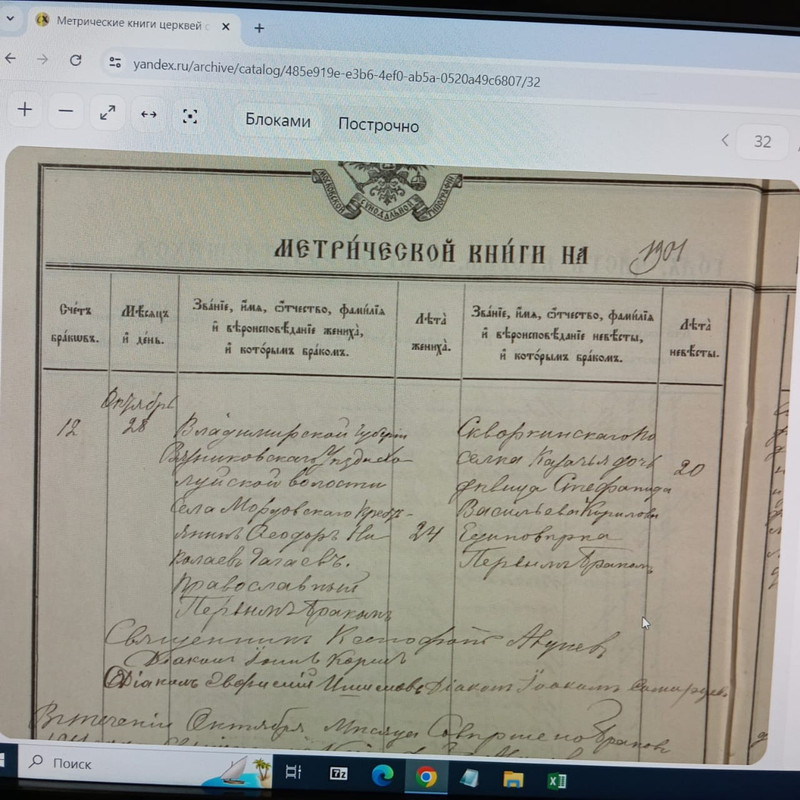 Метрические книги церквей с
yandex.ru/archive/catalog/485e919e-e3b6-4ef0-ab5a-0520a49c6807/32
Блоками
Построчно
32
МОСКОВСКОЙ СѴНОДАЛЬНОЙ ТИПОГРАФІИ
МЕТРИ́ЧЕСКОЙ КНИ́ГИ НА 1901
Сче́тъ бра́кѡвъ.
Мѣ́сяцъ и҆ де́нь.
Зва́нїе, и҆́мѧ, ѻ҆́тчество, фами́лїѧ и҆ вѣроисповѣ́данїе жениха̀, и҆ кото́рымъ бра́комъ.
Лѣ́та жениха̀.
Зва́нїе, и҆́мѧ, ѻ҆́тчество, фами́лїѧ и҆ вѣроисповѣ́данїе невѣ́сты, и҆ кото́рымъ бра́комъ.
Лѣ́та невѣ́сты.
Октябрь
12
28
Владимирской губерніи
Вязниковскаго уѣзда
волости
села Мордовскаго Кресть-
янинъ Ѳеодоръ Ни
колаевъ
Православный
Первымъ бракомъ
24
Скворкинскаго по
селка Казачья дочь
дѣвица Стефанида
Васильева Кирилова
Единовѣрка
Первымъ бракомъ
20
Священникъ Ксенофонтъ
Діаконъ
Діаконъ Діаконъ
Въ теченіи Октября Мѣсяца Совершено браковъ
Поиск